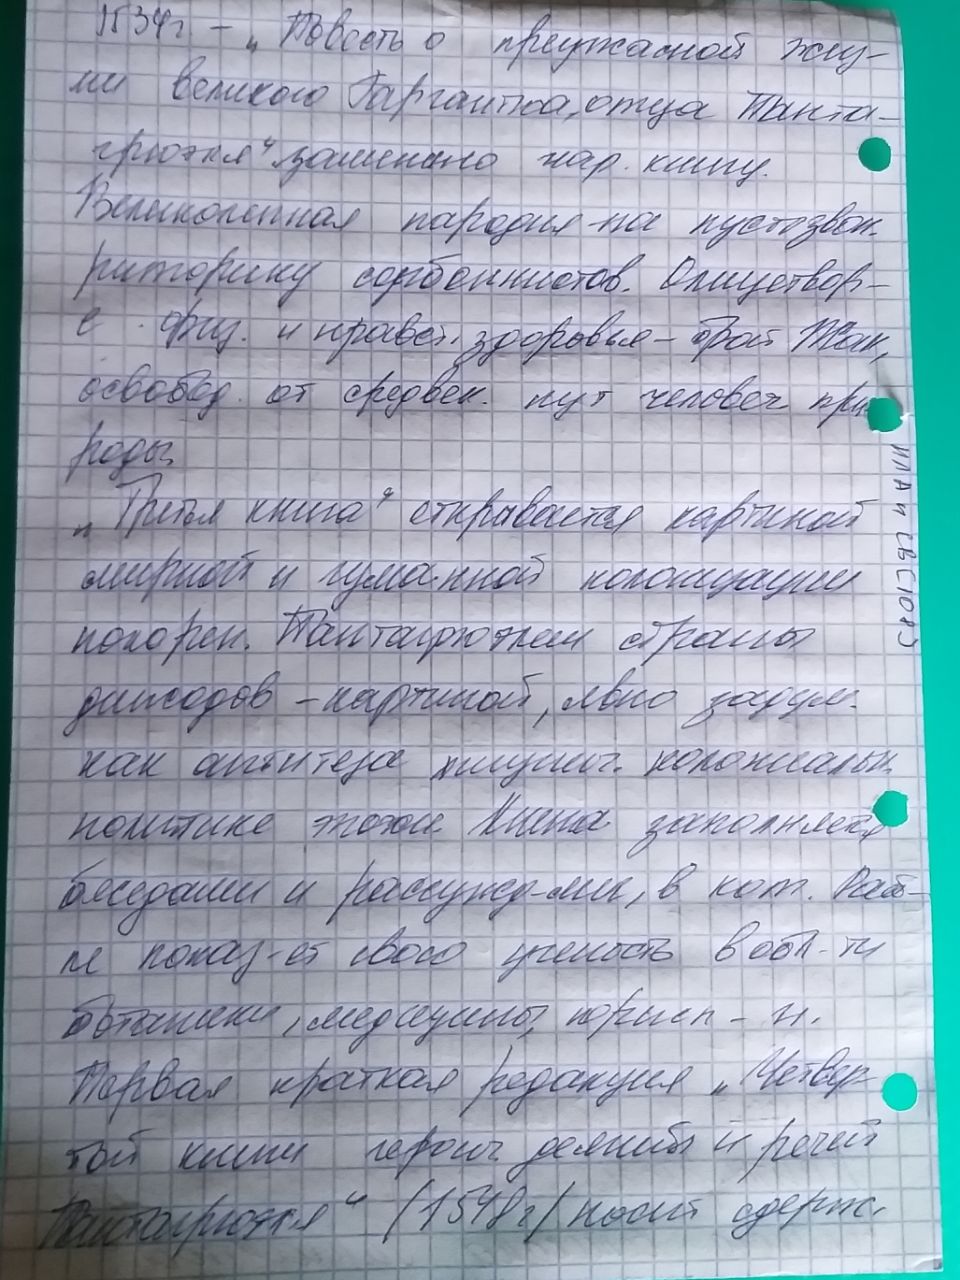 1534г – „Повесть о преужасной жиз-
ни великого Гаргантюа, отца Панта-
грюэля“ заменено нар. книгу.
Великолепная пародия – на пустозвон.
риторику сорбоннистов. Олицетвор-
е физ. и нравст. здоровья – брат Жан,
освобод. от средвек. пут человеч при
роды.
„Третья книга“ открывается картиной
мирной и гуманной колонизации
покорен. Пантагрюэлем страны
дипсодов – картиной, явно задум.
как антитеза хищнич. колониальн.
политике эпохи Книга заполняется
беседами и рассужд-ми, в кот. Раб-
ле показ-ет свою ученость в обл-ти
ботаники, медицины, юрисп – и.
Первая краткая редакция „Четвер-
той книги героич деяний и речей
Пантагрюэля“ /1548г/ носит сдерж.